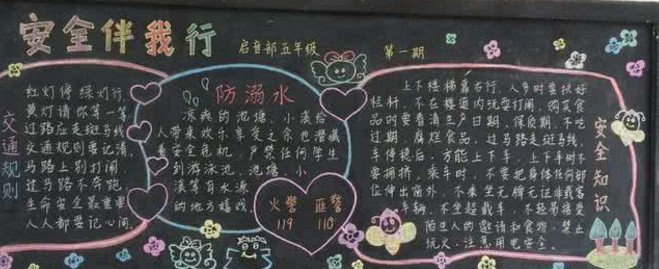 安全伴我行
启音部五年级
第一期
交通规则
红灯停绿灯行,
黄灯请你等一等,
过路应走斑马线,
交通规则要记清,
马路上别打闹,
过马路不奔跑,
生命安全最重要,
人人都要记心间。
防溺水
凉爽的池塘、小溪给
人带来欢乐享受之余也潜藏
着安全危机,严禁任何学生
到游泳池、池塘、小
溪等有水源
的地方嬉戏。
火警 匪警
119 110
上下楼梯靠右行,人多时要扶好
栏杆,不在楼道内玩耍打闹,购买食
品时要看清生产日期、保质期,不吃
过期、腐烂食品。过马路走斑马线,
车停稳后,方能上下车,上下车时不
要拥挤,乘车时,不要把身体任何部
位伸出窗外,不乘坐无牌无证非载客
车辆,不坐超载车,不轻易接受
陌生人的邀请和食物,禁止
玩火,注意用电安全。
安全知识